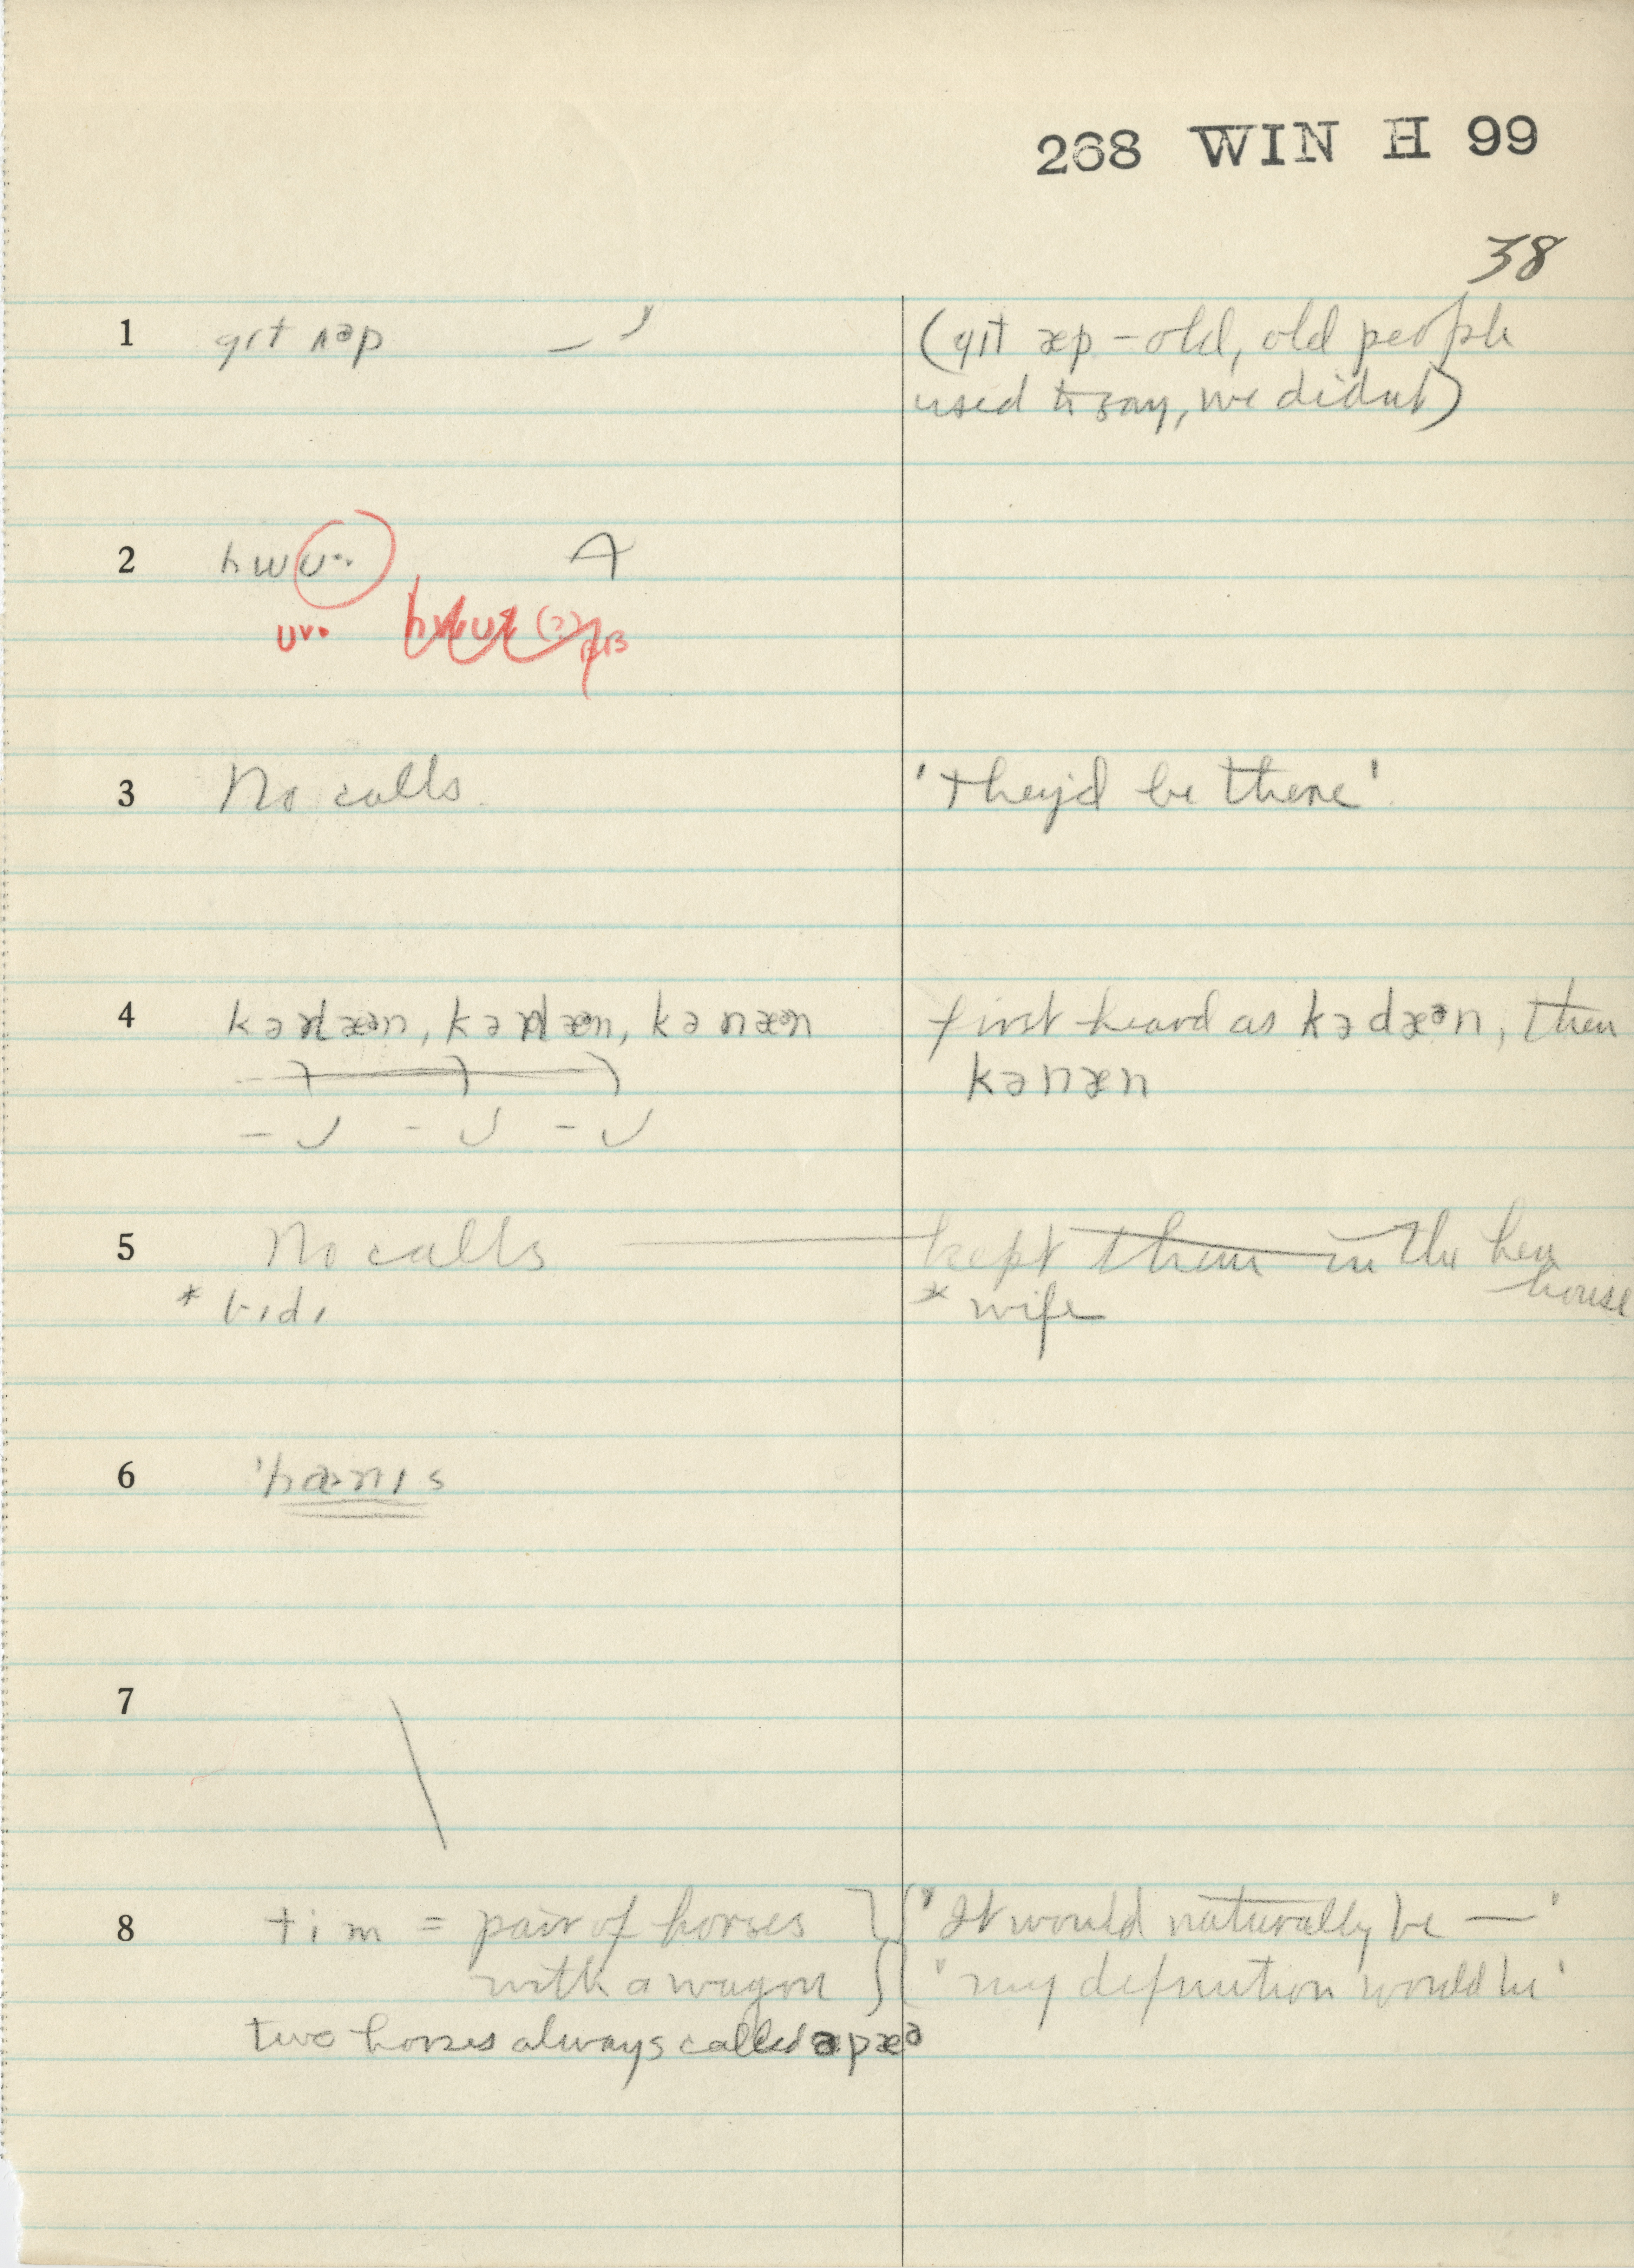 268 WIN H 99
38
1 gɪt ʌəp (gɪt æp – old, old people
used to say, we didn't)
2 hwʊ··
ʊv·
3 No calls. 'they'd be there'.
4 first heard as kədæᵊn, then
kənæn
5 No calls kept them in the hen
house
* bɪdɪ * wife
6 'hæ·nɪs
7
8 tim = pair of horses 'It would naturally be —'
with a wagon 'my definition would be'
two horses always called ə pæᵊ